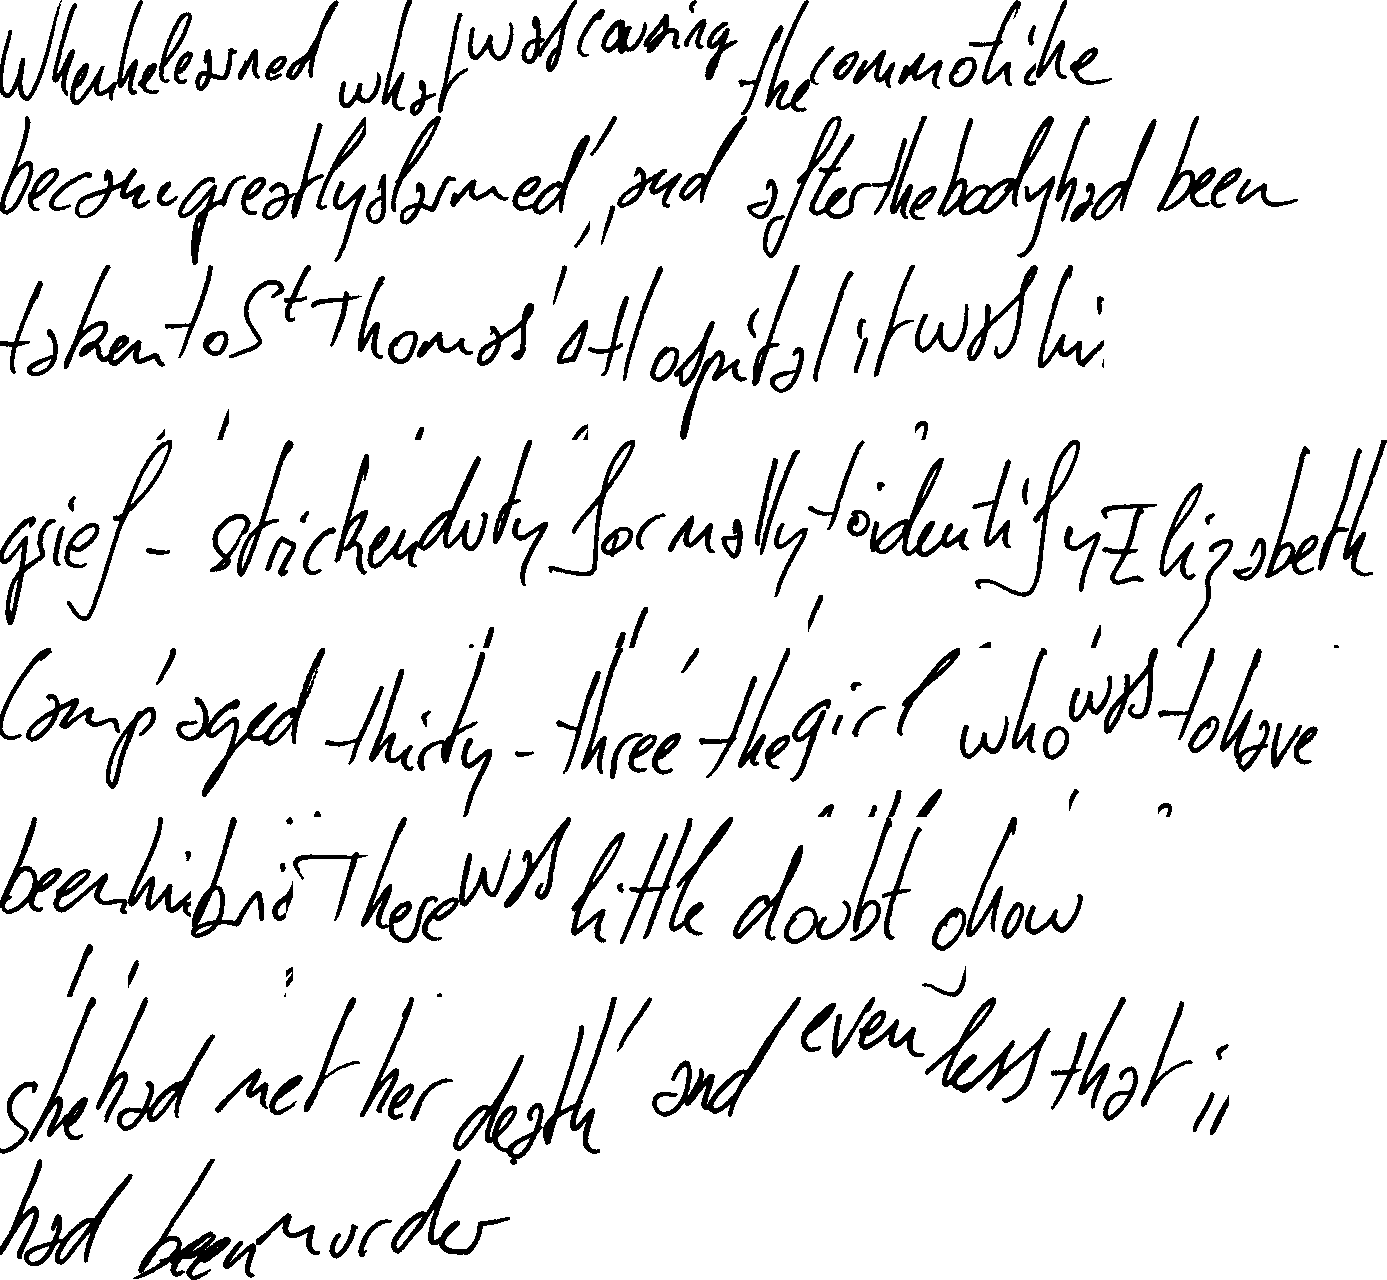 When he learned what was causing the commoti he
becam greatly alarmed, and after the body had been
taken to St Thomas's Hospital it was hi
grief-stricken duty formally to identify Elizabeth
Camp aged thirty-three the girl who was to have
been hi brid There was little doubt how
she had met her death and even less that i
had been murder